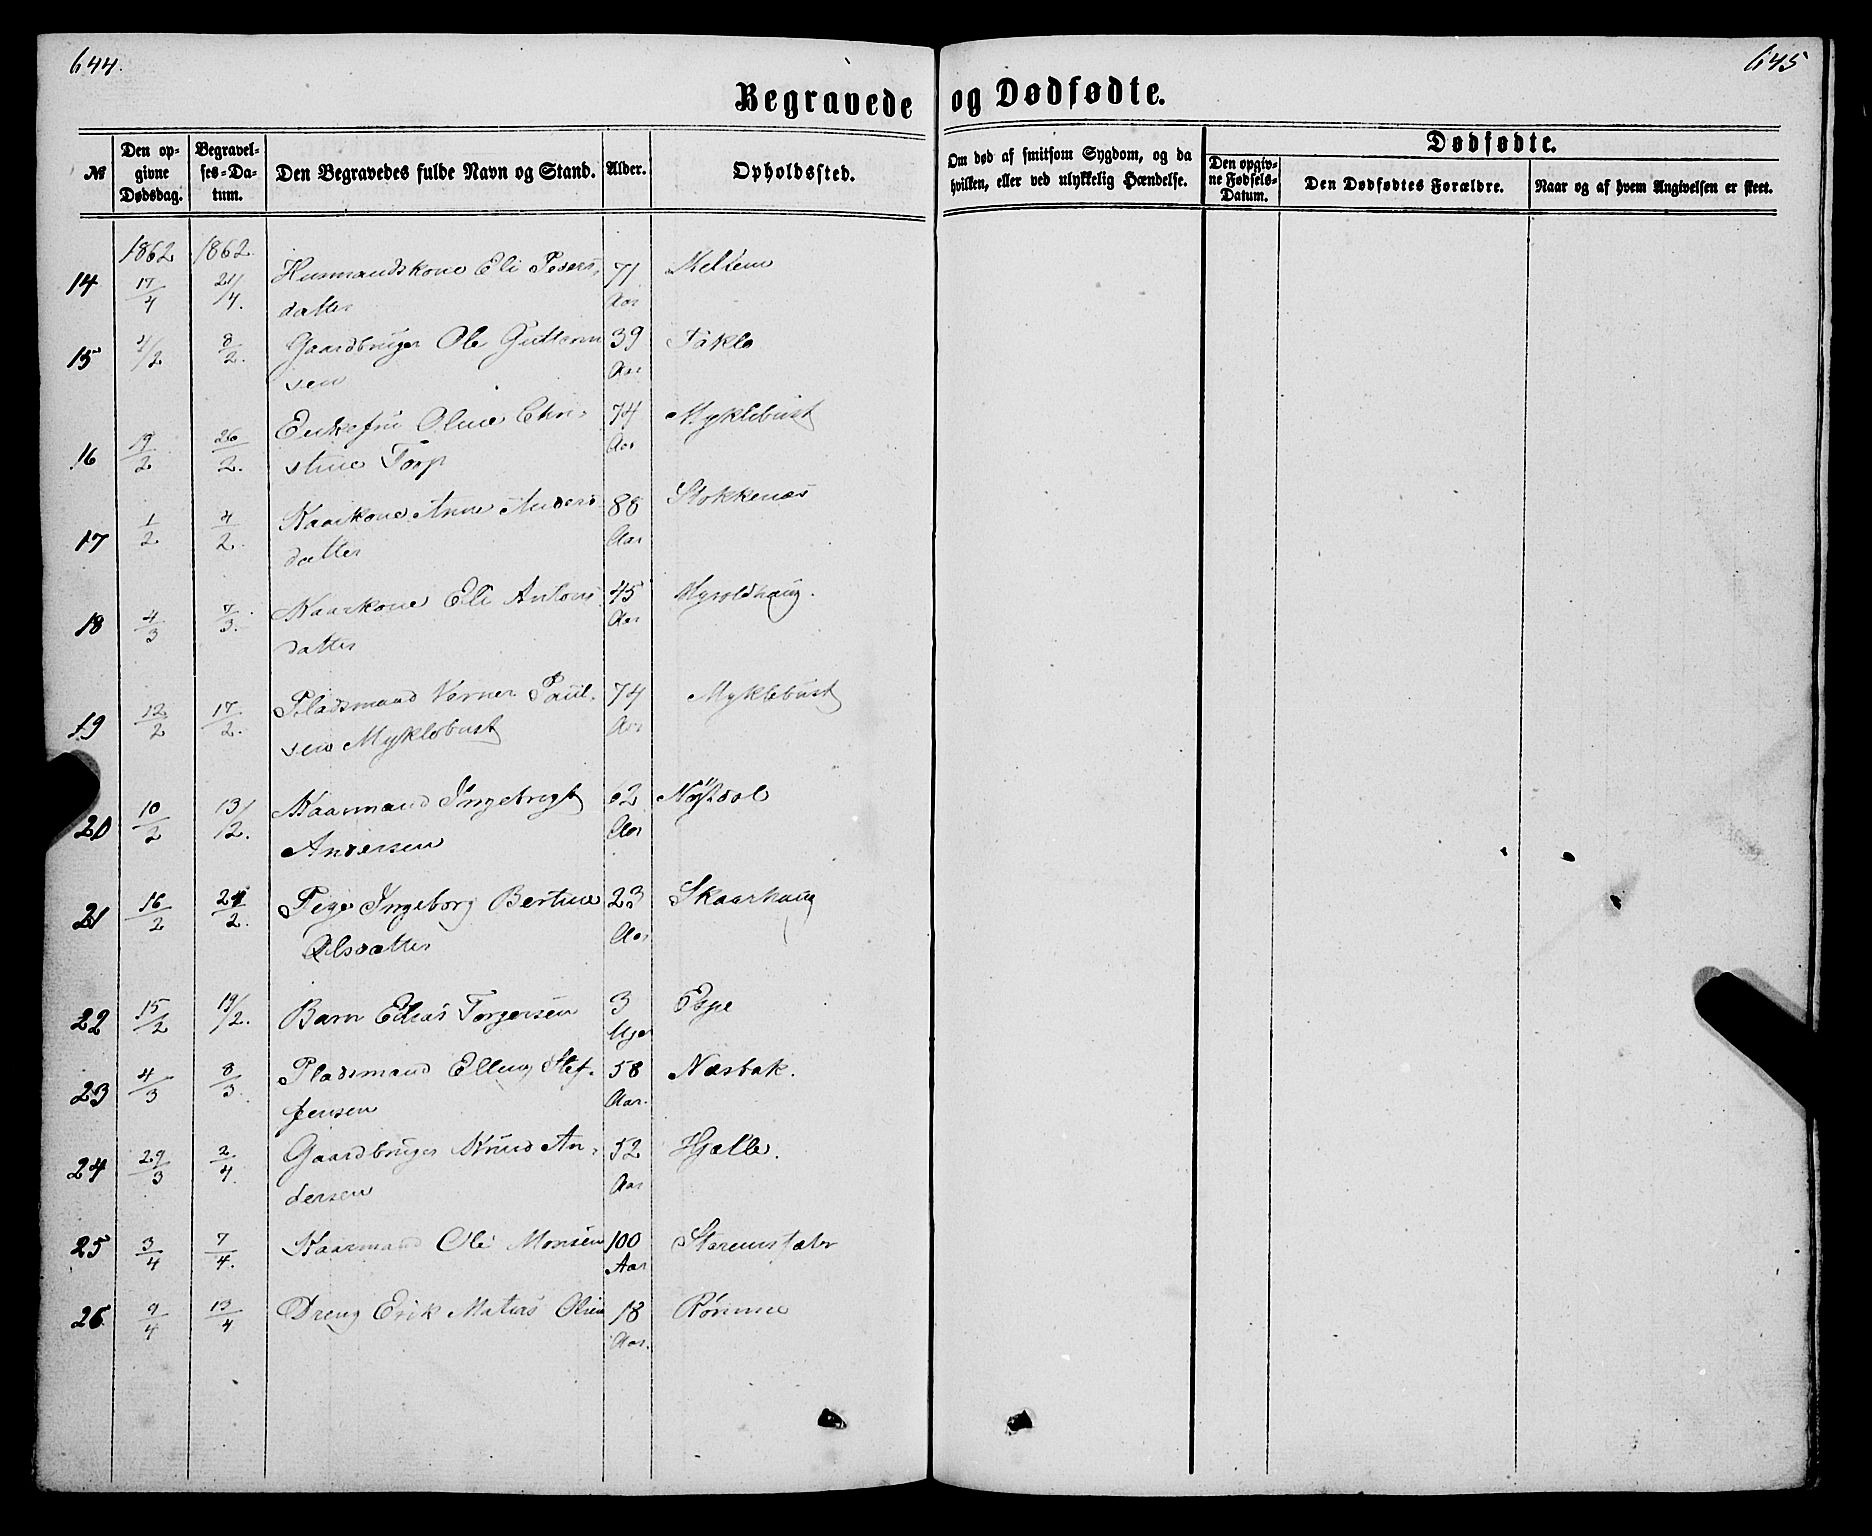 644.
645
Begravede og Dødfødte.
№ Den opgivne Dødsdag. Begravelses-Datum. Den Begravedes fulde Navn og Stand. Alder. Opholdssted. Om død af smitsom Sygdom, og da hvilken, eller ved ulykkelig Hændelse. Dødfødte.
Den opgivne Fødsels-Datum. Den Dødfødtes Forældre. Naar og af hvem Angivelsen er skeet.
1862 1862.
14 17/4 21/4. Husmandskone Eli Peders, 71 Meltem
datter Aar
15 4/2 8/2. Gaardbruger Ole Guttorm 39 Takle
sen Aar
16 19/2 26/2. Enkefru Oline Chri- 74 Myklebust
stine Torp Aar
17 1/2 4/2. Kaarkone Anne Anders 88 Stokkenæs
datter Aar
18 4/3 7/3. Kaarkone Eli Antons 45 Myroldhaug.
datter Aar
19 12/2 17/2. Pladsmand Verner Paul- 74 Myklebust
sen Myklebust Aar
20 10/2 13/12. Kaarmand Ingebrigt 62 Nøstdal
Andersen Aar
21 16/2 24/2. Pige Ingeborg Bertine 23 Skaarhaug
Olsdatter Aar
22 15/2 19/2. Barn Elias Torgersen 3 Espe
Uger
23 4/3 8/3. Pladsmand Elling Stef- 58 Næsbak.
fensen Aar.
24 29/3 2/4. Gaardbruger Knud An- 52 Hjælle.
dersen Aar
25 3/4 7/4. Kaarmand Ole Monsen 100
Aar
26 9/4 13/4 Dreng Erik Matias Olsen 18
Aar.